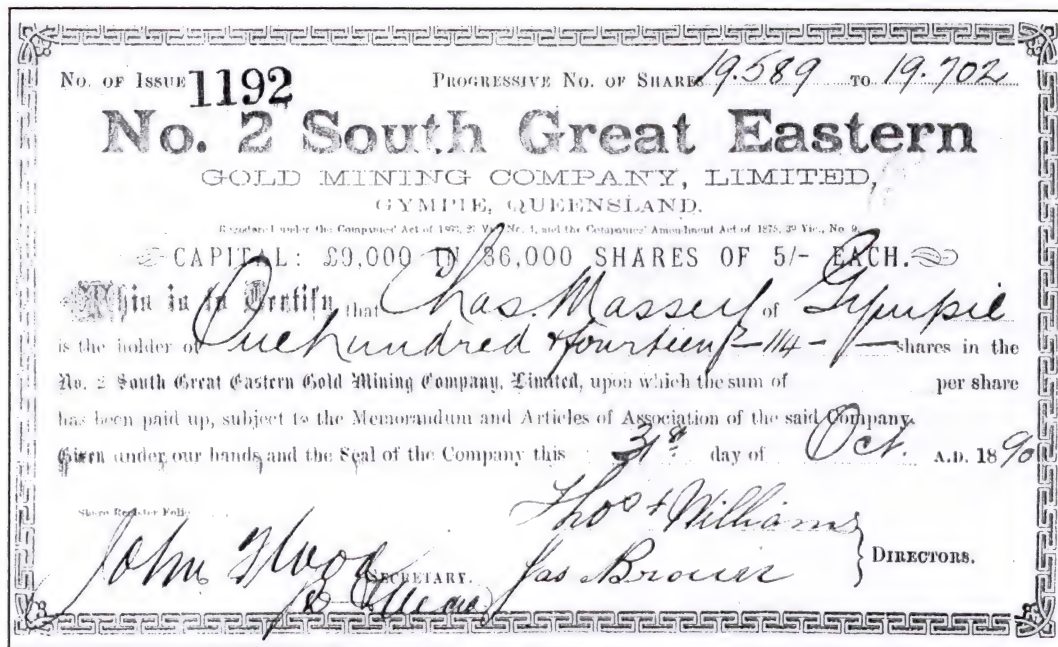 No. of Issue 1192 Progressive No. of Shares 19.589 to 19.702
No. 2 South Great Eastern
GOLD MINING COMPANY, LIMITED,
GYMPIE, QUEENSLAND.
Registered under the Companies' Act of 1863, 27 Vic., No. 4, and the Companies' Amendment Act of 1875, 39 Vic., No. 9.
CAPITAL: £9,000 IN 36,000 SHARES OF 5/- EACH.
This is to Certify that Chas. Massey of Gympie
is the holder of One hundred & fourteen /- 114 -/- shares in the
No. 2 South Great Eastern Gold Mining Company, Limited, upon which the sum of per share
has been paid up, subject to the Memorandum and Articles of Association of the said Company.
Given under our hands and the Seal of the Company this 31st day of Oct. A.D. 1890
Share Register Folio
Thos Williams
John Flood SECRETARY. Jas Brown DIRECTORS.